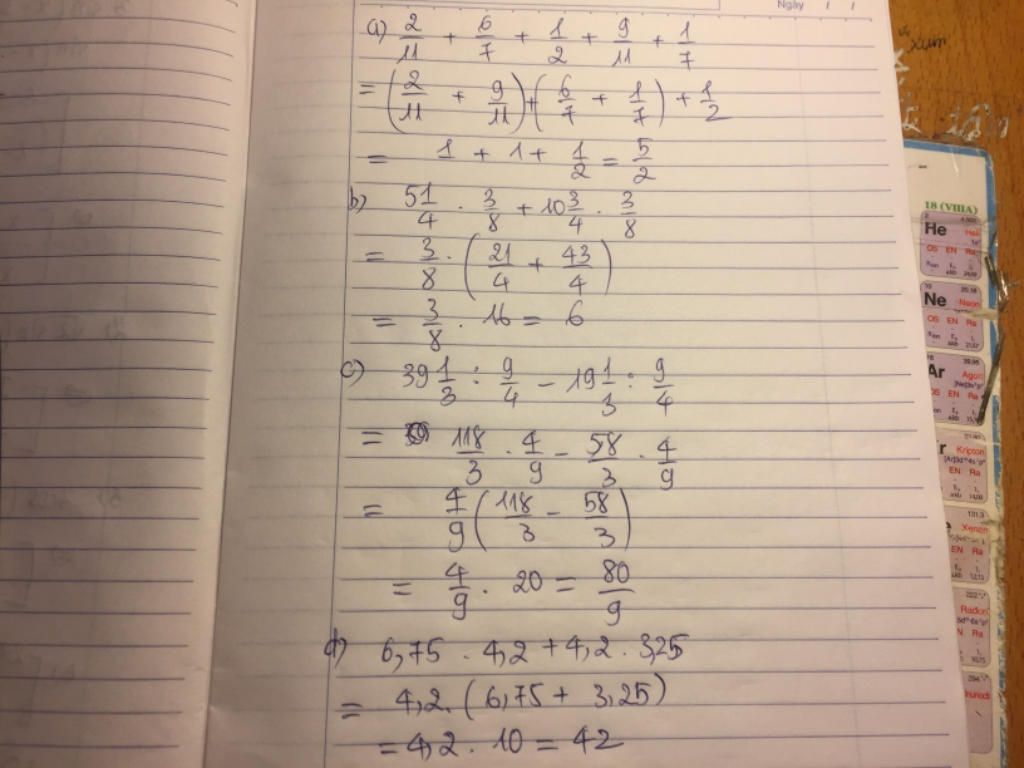 Ngày / /
a) 2/11 + 6/7 + 1/2 + 9/11 + 1/7
= (2/11 + 9/11) + (6/7 + 1/7) + 1/2
= 1 + 1 + 1/2 = 5/2
b) 51/4 . 3/8 + 10 3/4 . 3/8
= 3/8 . (21/4 + 43/4)
= 3/8 . 16 = 6
c) 39 1/3 : 9/4 - 19 1/3 : 9/4
= 118/3 . 4/9 - 58/3 . 4/9
= 4/9 (118/3 - 58/3)
= 4/9 . 20 = 80/9
d) 6,75 . 4,2 + 4,2 . 3,25
= 4,2 . (6,75 + 3,25)
= 4,2 . 10 = 42
xum
18 (VIIIA)
He
OS EN Ra
Ne Neon
OS EN Ra
Ar Agon
OS EN Ra
Kripton
EN Ra
131,3
Xenon
EN Ra
Radon
EN Ra